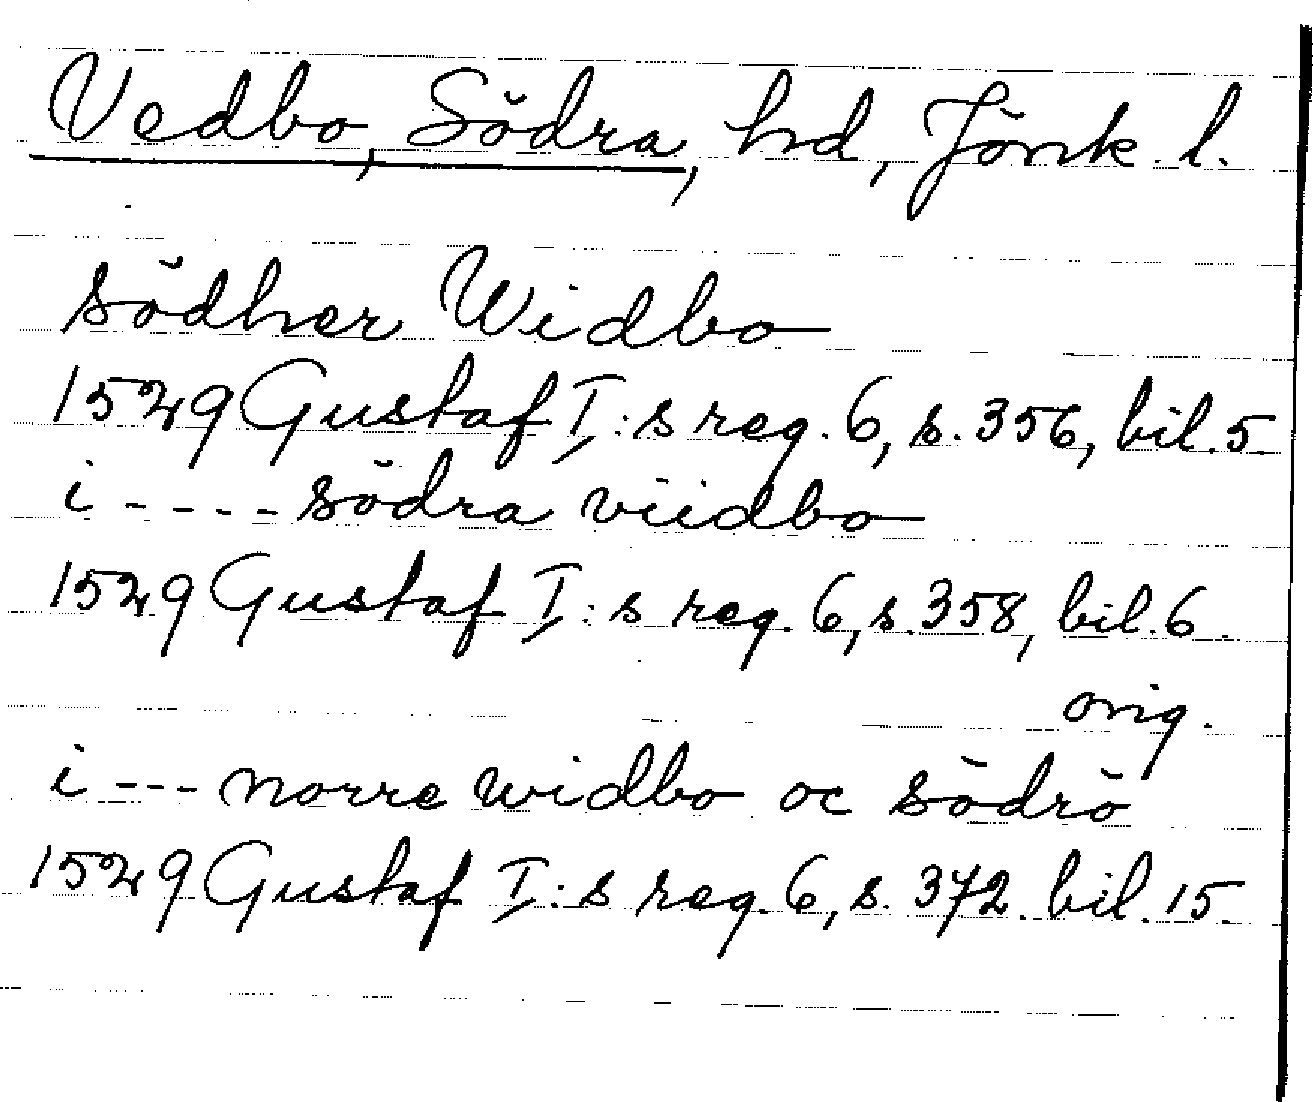 Vedbo, Södra, hd, Jönk. l.
södher Widbo
1529 Gustaf I:s reg. 6, s. 356, bil. 5
i - - - - södra viidbo
1529 Gustaf I:s reg. 6, s. 358, bil. 6.
orig.
i - - - norre widbo oc södrö
1529 Gustaf I:s reg. 6, s. 372. bil. 15